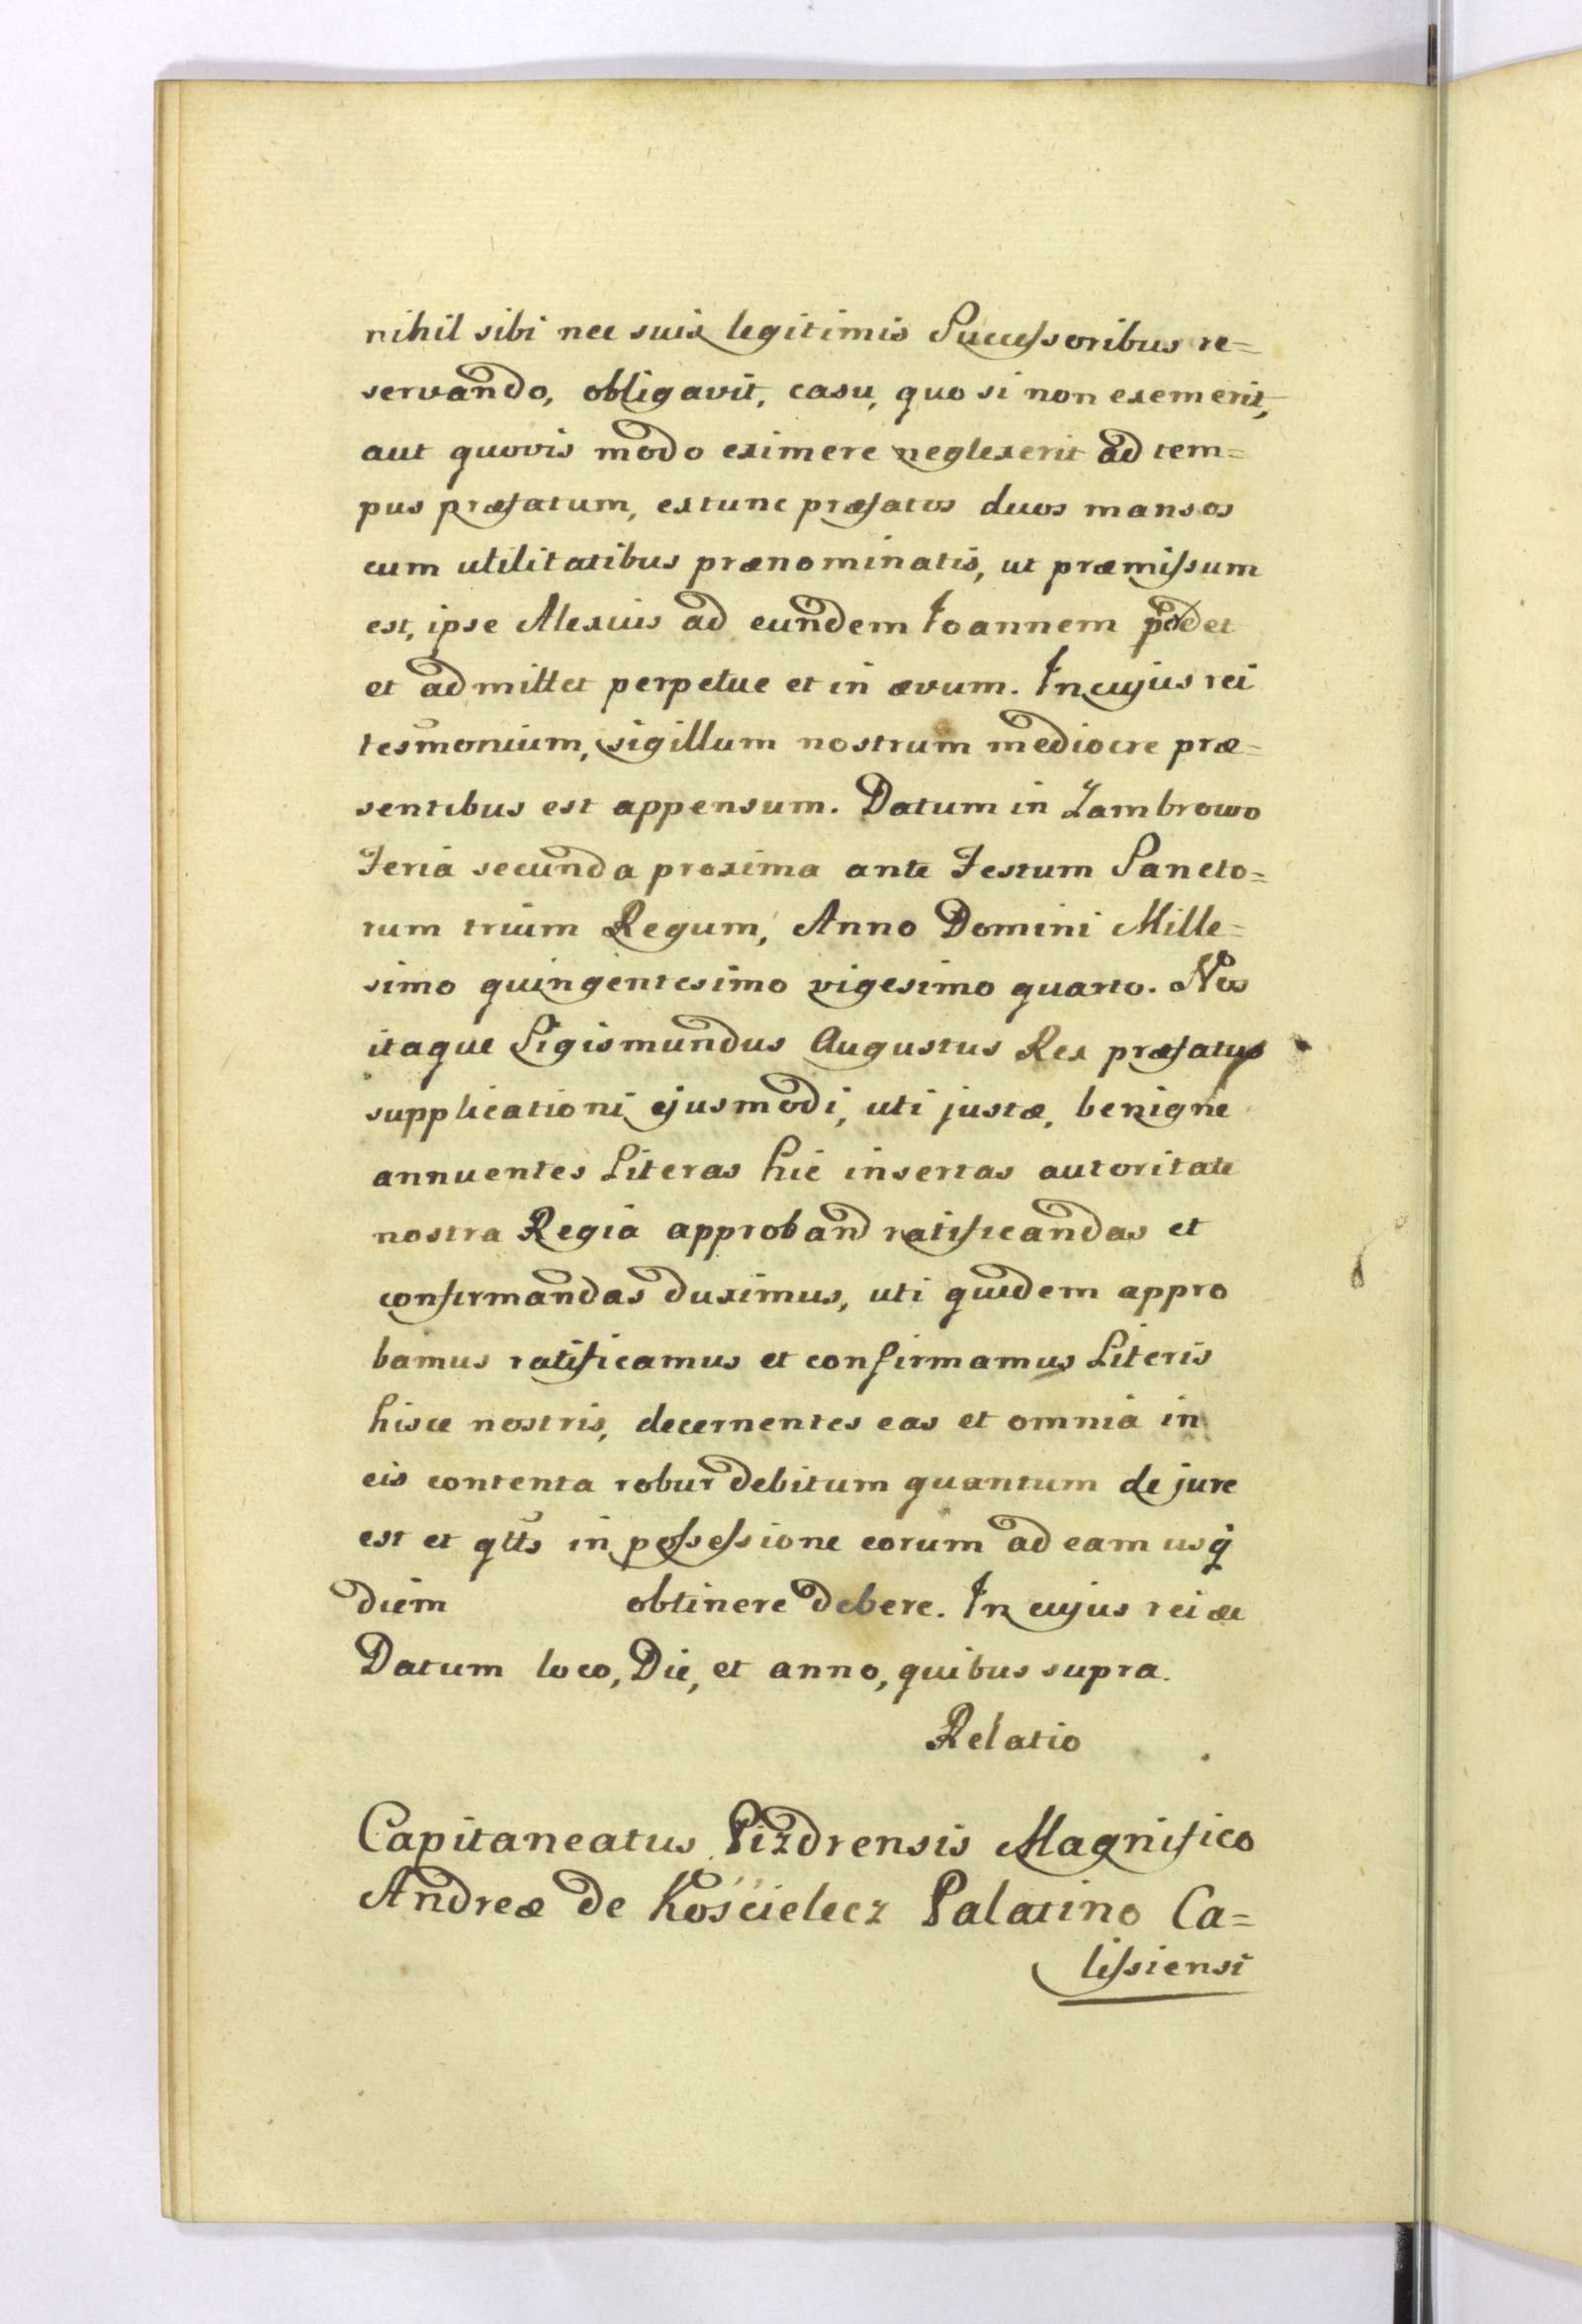 nihil sibi nec suis legitimis Successoribus re=
servando, obligavit, casu, quo si non exemerit,
aut quovis modo eximere neglexerit ad tem=
pus præfatum, extunc præfatos duos mansos
cum utilitatibus prænominatis, ut præmissum
est, ipse Alexius ad eundem Joannem
et admittet perpetue et in ævum. In cujus rei
tesmonium, sigillum nostrum mediocre præ=
sentibus est appensum. Datum in Zambrowo
Feria secunda proxima ante Festum Sancto=
rum trium Regum, Anno Domini Mille=
simo quingentesimo vigesimo quarto. Nos
itaque Sigismundus Augustus Rex præfatus
supplicationi ejusmodi, uti justæ, benigne
annuentes Literas hic insertas autoritate
nostra Regia approband ratificandas et
confirmandas duximus, uti quidem appro
bamus ratificamus et confirmamus Literis
hisce nostris, decernentes eas et omnia in
eis contenta robur debitum quantum de jure
est et qtts in possessione eorum ad eam usq
diem obtinere debere. In cujus rei &c
Datum loco, Die, et anno, quibus supra.
Relatio
Capitaneatus Pizdrensis Magnifico
Andreæ de Kościelecz Palatino Ca=
lissiensi